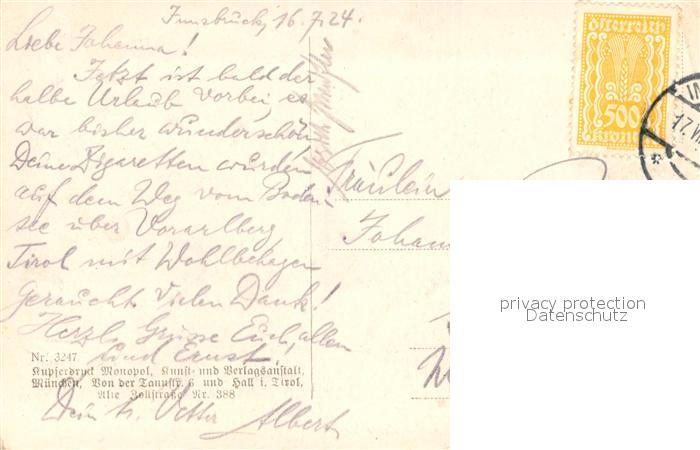 Innsbruck, 16.7.24.
Liebe Johanna!
Jetzt ist bald der
halbe Urlaub vorbei, es
war bisher wunderschön
Deine Zigaretten wurden
auf dem Weg vom Boden-
see über Vorarlberg
Tirol mit Wohlbehagen
geraucht. Vielen Dank!
Herzl. Grüsse Euch allen
und Ernst.
Dein tr. Vetter Albert
Nr. 3247
Kupferdruck Monopol, Kunst- und Verlagsanstalt,
München, Von der Tannstr. 6 und Hall i. Tirol,
Alte Zollstraße Nr. 388
Fräulein
Johan
Österreich
500
Kronen
IN
17.VI
privacy protection
Datenschutz